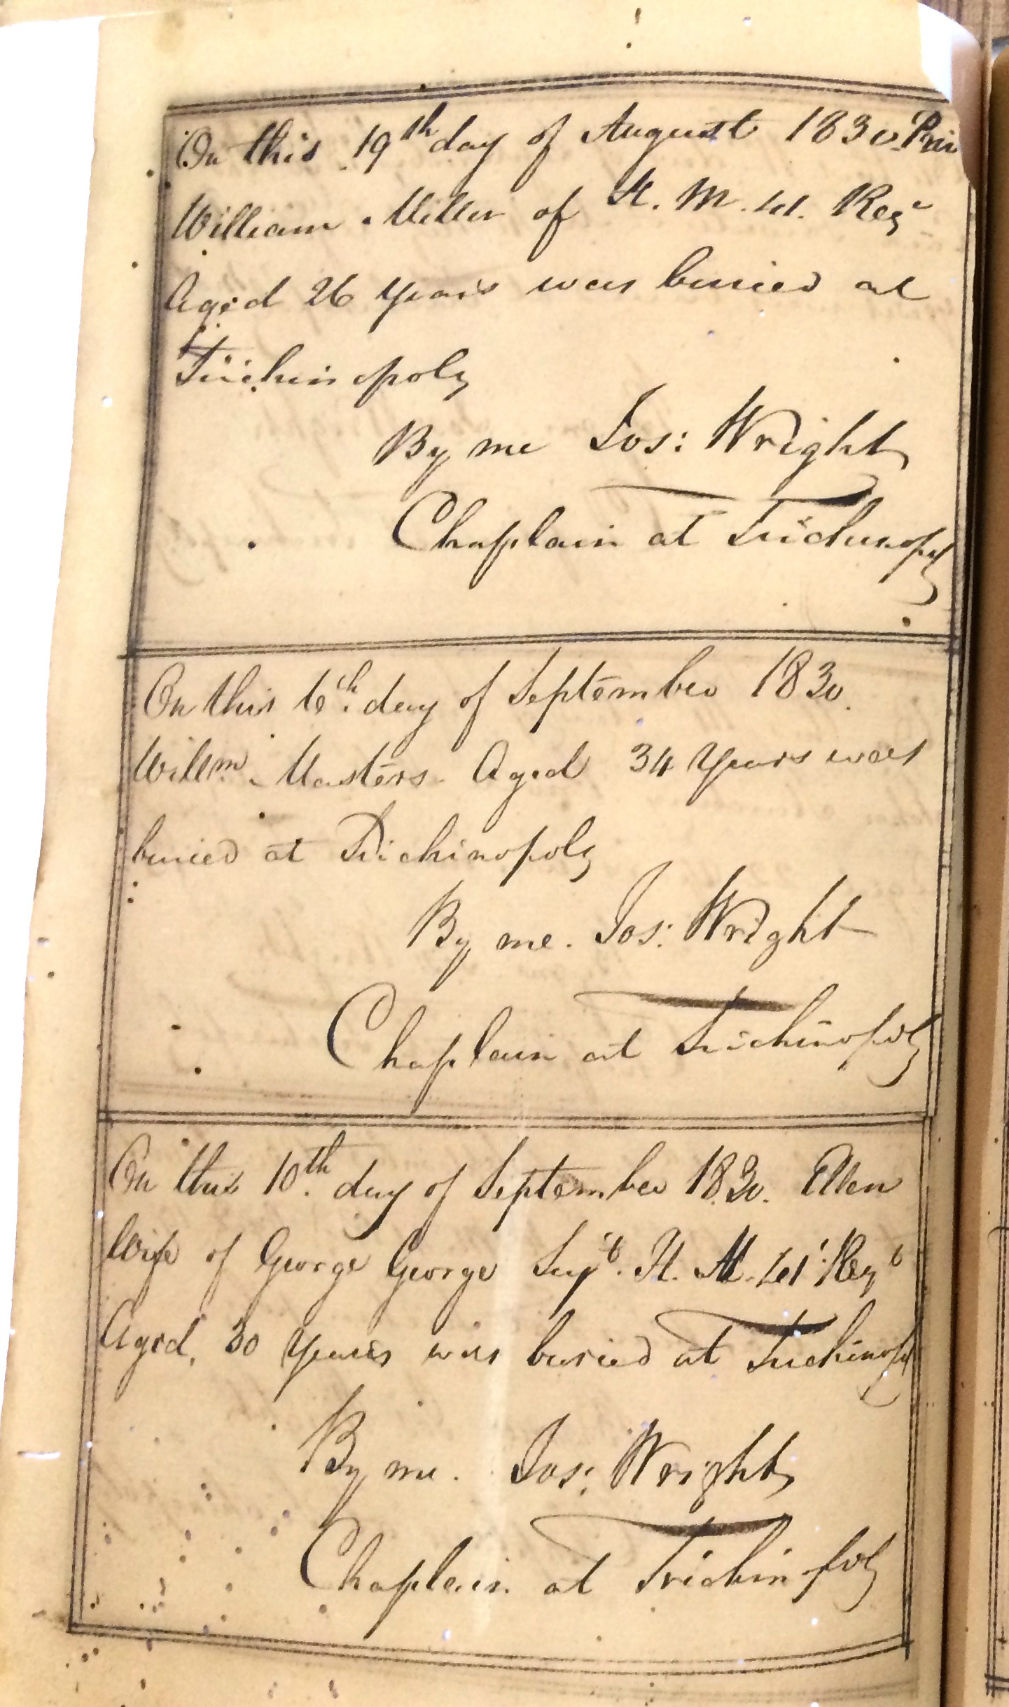 On this 19th day of August 1830. Priv
William Miller of H. M. 41. Regt
Aged 26 years was buried at
Trichinopoly
By me Jos: Wright
Chaplain at Trichinopoly
On this 6th. day of September 1830.
Willm. Masters. Aged 34 years was
buried at Trichinopoly
By me. Jos: Wright
Chaplain at Trichinopoly
On this 10th. day of September 1830. Ellen
Wife of George George H. M. 41 Regt
Aged, 30 years was buried at Trichinopoly
By me. Jos: Wright
Chaplain at Trichinopoly